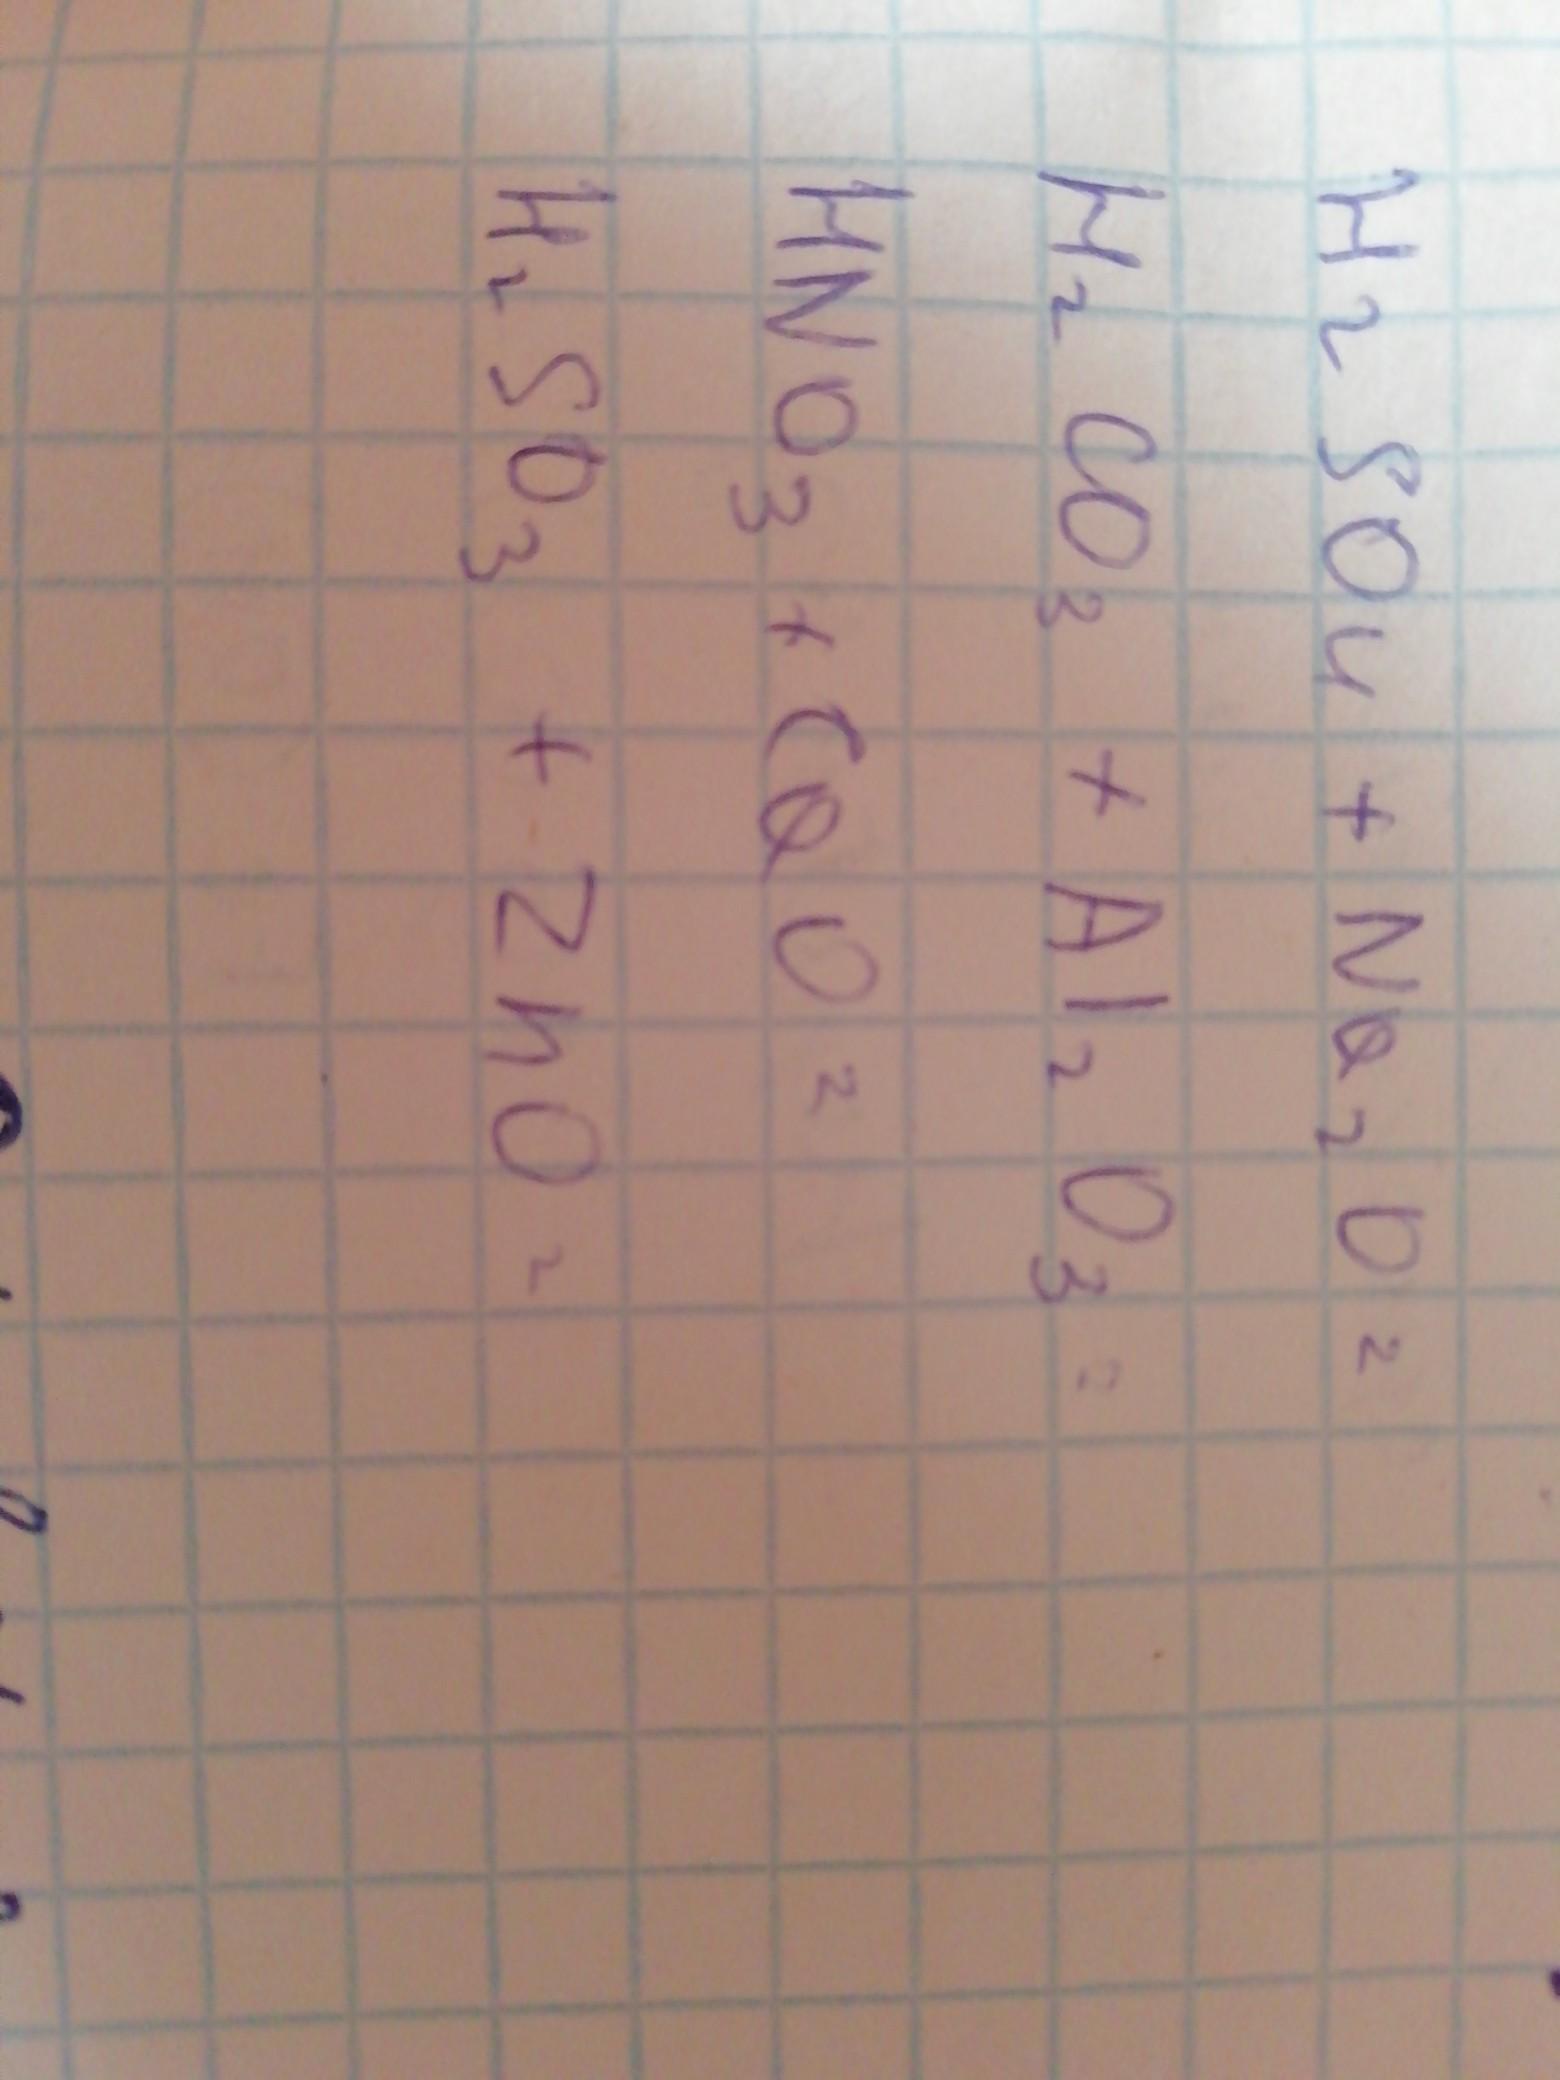 H₂SO₄ + Na₂O =
H₂CO₃ + Al₂O₃ =
HNO₃ + CaO =
H₂SO₃ + ZnO =